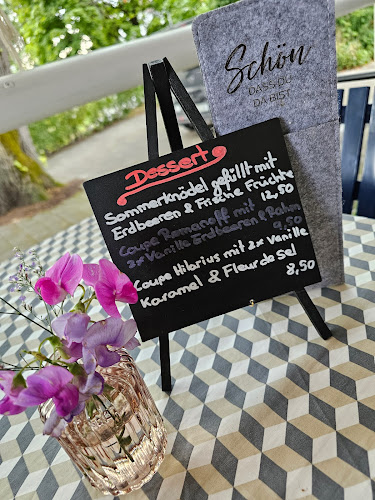 Schön
DASS DU
DA BIST
Dessert
Sommerknödel gefüllt mit
Erdbeeren & Frische Früchte
12,50
Coupe Romanoff mit 9,50
2x Vanille Erdbeeren & Rahm
Coupe Hibrius mit 2x Vanille
Karamel & Fleur de Sel
8,50